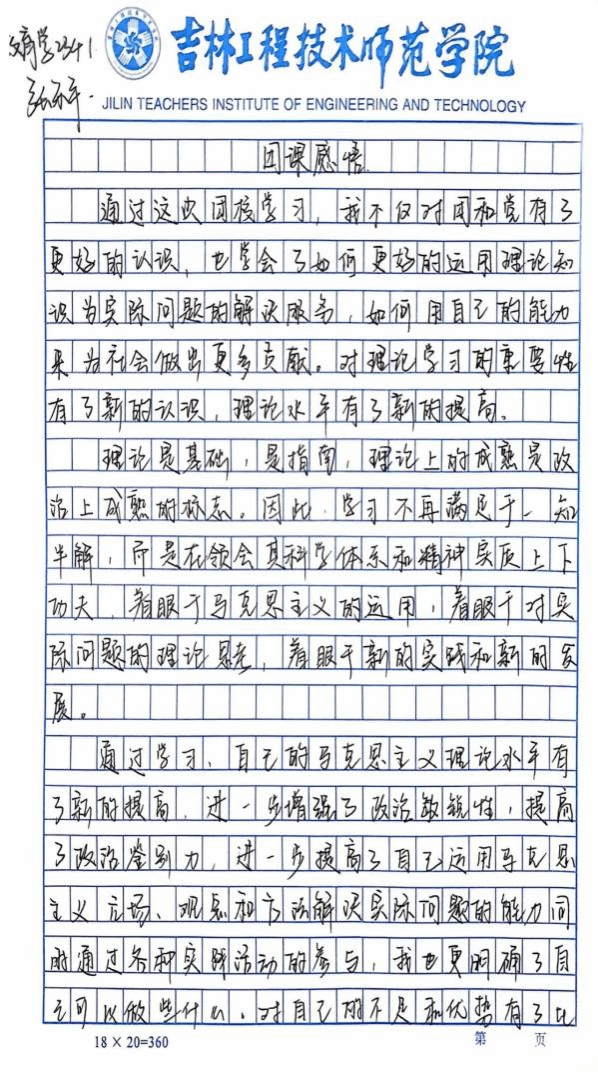 吉林工程技术师范学院
JILIN TEACHERS INSTITUTE OF ENGINEERING AND TECHNOLOGY
团课感悟
通过这次团校学习，我不仅对团和党有了
更好的认识，也学会了如何更好的运用理论知
识为实际问题的解决服务，如何用自己的能力
来为社会做出更多贡献。对理论学习的重要性
有了新的认识，理论水平有了新的提高。
理论是基础，是指南，理论上的成熟是政
治上成熟的标志。因此，学习不再满足于一知
半解，而是在领会其科学体系和精神实质上下
功夫，着眼于马克思主义的运用，着眼于对实
际问题的理论思考，着眼于新的实践和新的发
展。
通过学习，自己的马克思主义理论水平有
了新的提高，进一步增强了政治敏锐性，提高
了政治鉴别力，进一步提高了自己运用马克思
主义立场、观点和方法解决实际问题的能力同
时通过各种实践活动的参与，我也更明确了自
己可以做些什么。对自己的不足和优势有了比
18 × 20=360
第 页